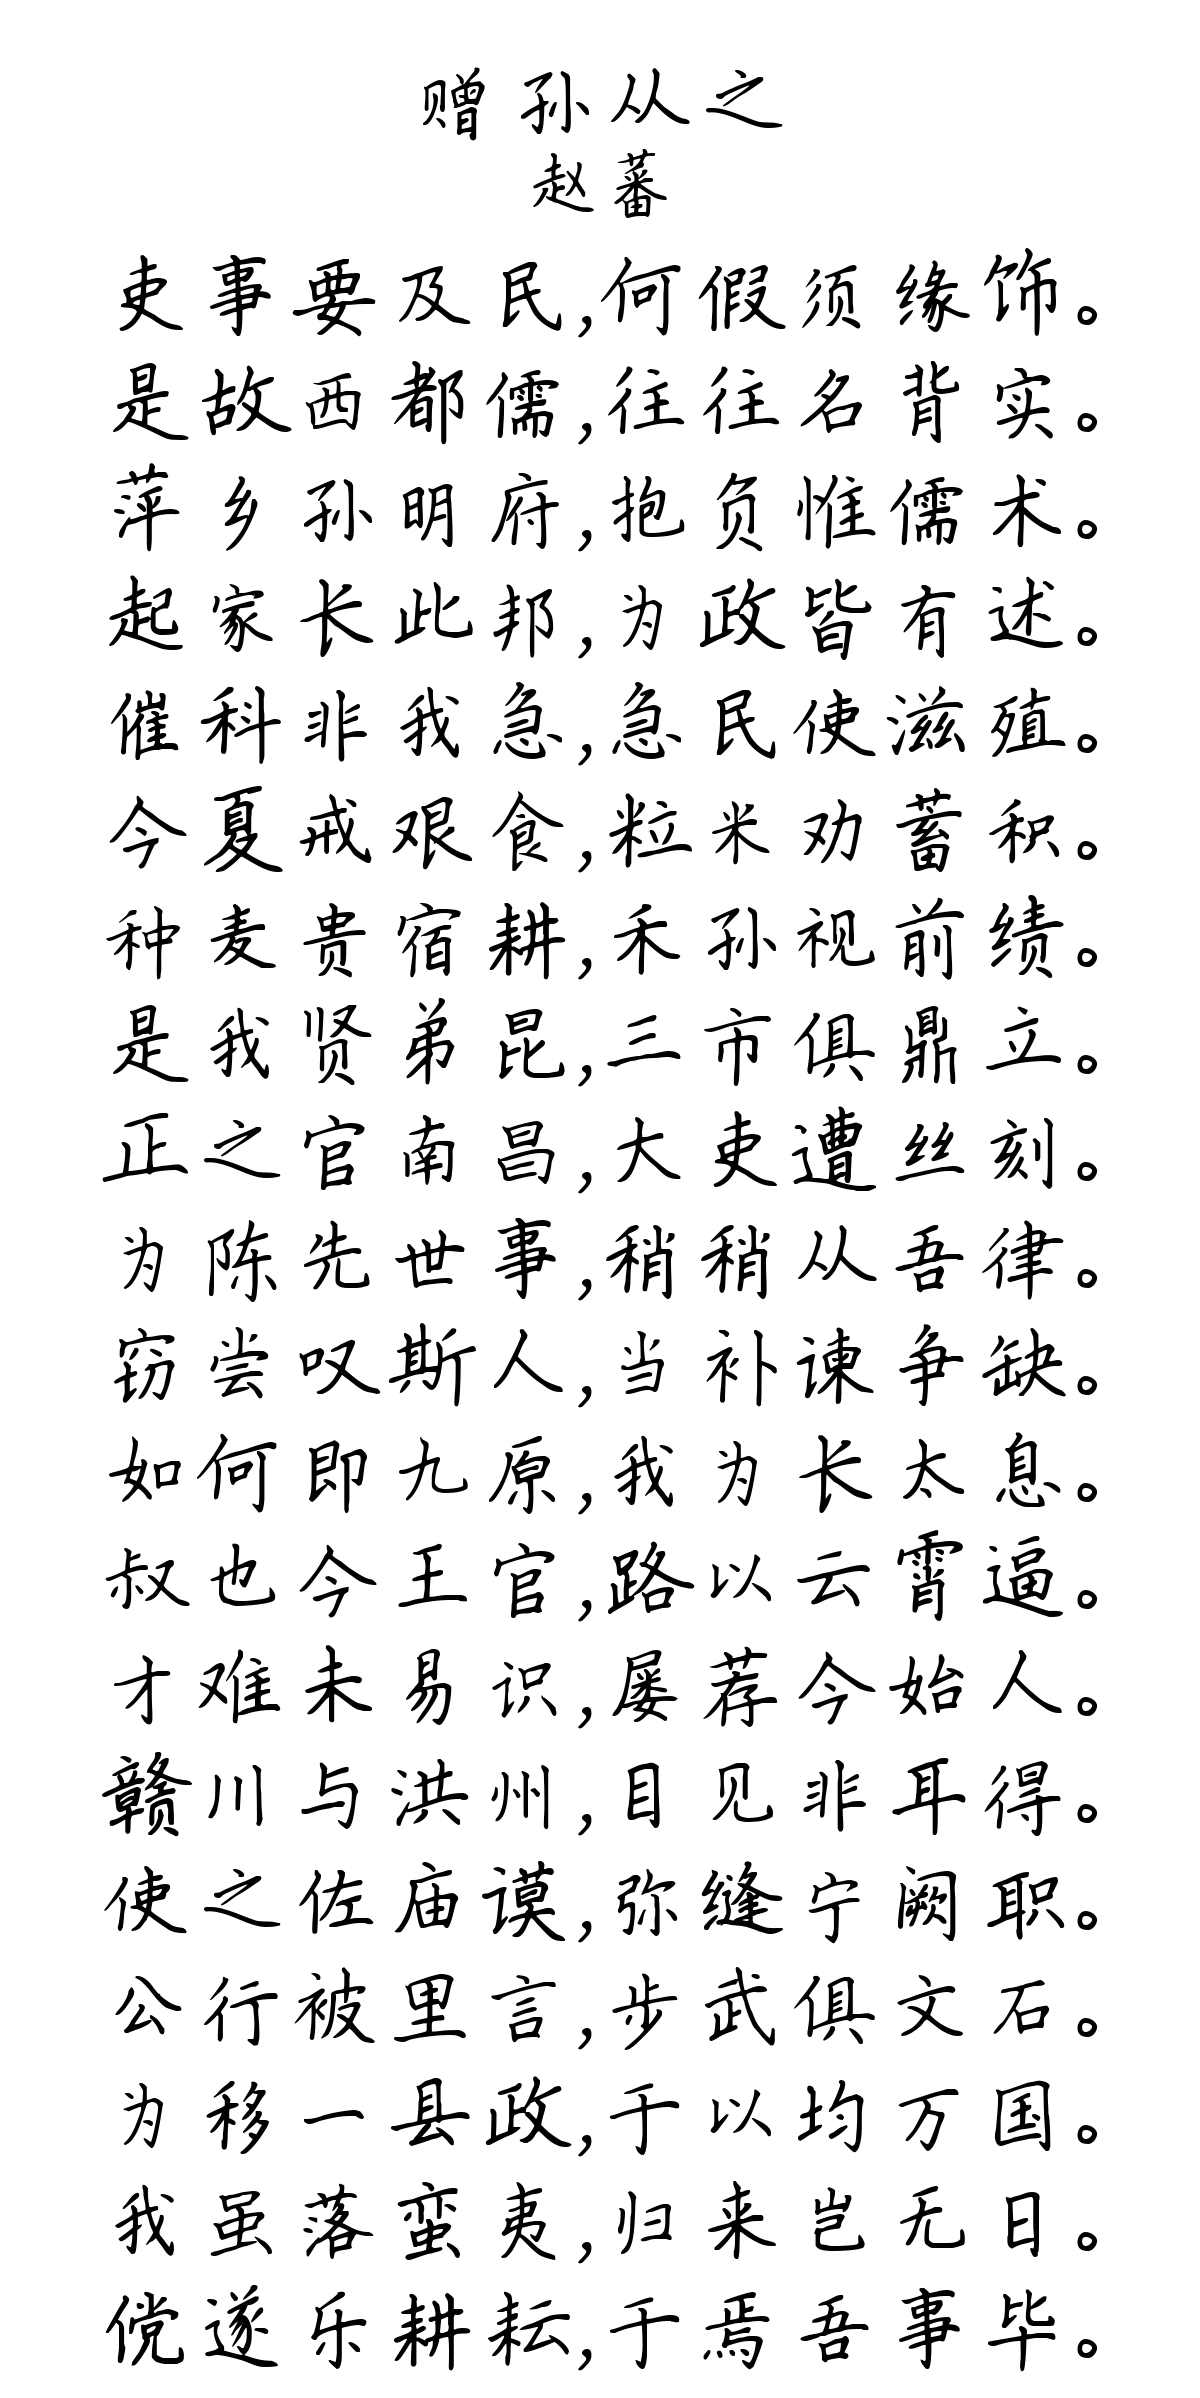 赠孙从之
赵蕃
吏事要及民,何假须缘饰。
是故西都儒,往往名背实。
萍乡孙明府,抱负惟儒术。
起家长此邦,为政皆有述。
催科非我急,急民使滋殖。
今夏戒艰食,粒米劝蓄积。
种麦贵宿耕,禾孙视前绩。
是我贤弟昆,三市俱鼎立。
正之官南昌,大吏遭丝刻。
为陈先世事,稍稍从吾律。
窃尝叹斯人,当补谏争缺。
如何即九原,我为长太息。
叔也今王官,路以云霄逼。
才难未易识,屡荐今始人。
赣川与洪州,目见非耳得。
使之佐庙谟,弥缝宁阙职。
公行被里言,步武俱文石。
为移一县政,于以均万国。
我虽落蛮夷,归来岂无日。
傥遂乐耕耘,于焉吾事毕。